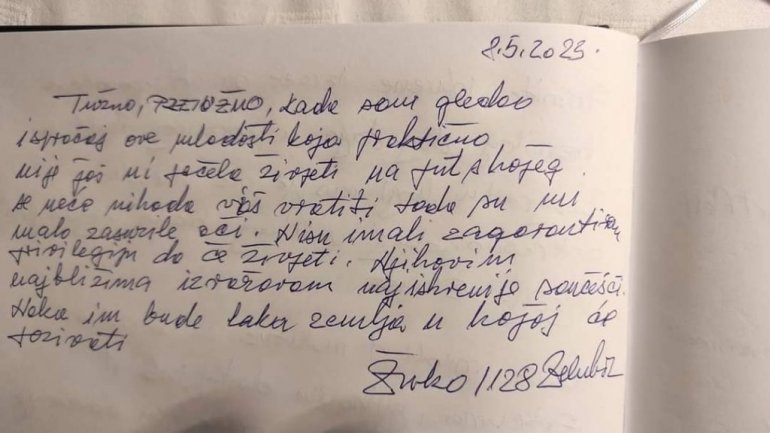 8.5.2023.
Tužno, PRETUŽNO, kada sam gledao
ispraćaj ove mladosti koja praktično
nije još ni počela živjeti na put s kojeg
se neće nikada više vratiti tada su mi
malo zasuzile oči. Nisu imali zagarantiranu
privilegiju da će živjeti. Njihovim
najbližima izražavam najiskrenije saučešće.
Neka im bude laka zemlja u kojoj će
počivati
Živko /128